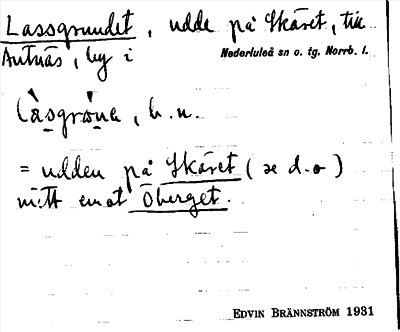 Lassgrundet, udde på Skäret, till
Antnäs, by i Nederluleå sn o. tg. Norrb. l.
b. u.
= udden på Skäret (se d. o)
mitt emot Öberget.
EDVIN BRÄNNSTRÖM 1931